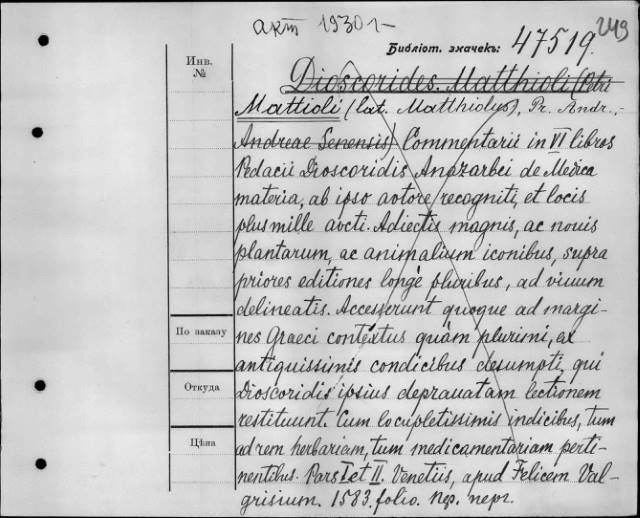 акт 1930 г-
249
Библіот. значекъ: 47519.
Инв.
№
Dioscorides. Matthioli (Petri
Mattioli (lat. Matthiolus), Pr. Andr.,-
Andreae Senensis) Commentarii in VI libros
Pedacii Dioscoridis Anazarbei de Medica
materia, ab ipso autore recogniti, et locis
plus mille aucti. Adiectis magnis, ac nouis
plantarum, ac animalium iconibus, supra
priores editiones longè pluribus, ad viuum
delineatis. Accesserunt quoque ad margi-
nes Graeci contextus quàm plurimi, ex
По заказу
antiquissimis condicibus desumpti, qui
Откуда
Dioscoridis ipsius deprauatam lectionem
restituunt. Cum locupletissimis indicibus, tum
Цѣна
ad rem herbariam, tum medicamentariam perti-
nentibus. Pars I et II. Venetiis, apud Felicem Val-
grisium. 1583. folio. пер.